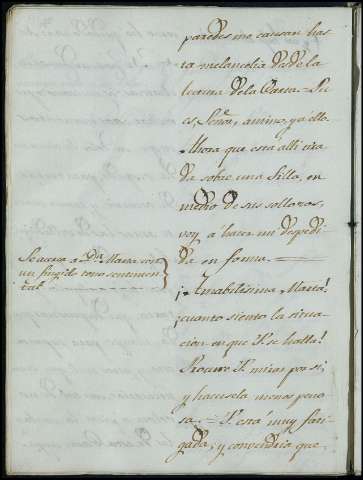 paredes me causan has
ta melancolia desde la
trama de la
es, Señor, animo, y a ello.
Ahora que está alli tira
da sobre una Silla, en
medio de sus sollozos,
voy á hacer mi despedi
da en forma.
Se acerca a Dª Marta con
un fingido tono sentimen
tal.
¡Amabilisima Marta!
¡cuanto siento la situa
cion en que V. se halla!
Procure V. mirar por si,
y hacersela menos peno
sa. V. está muy fati
gada, y convendria que